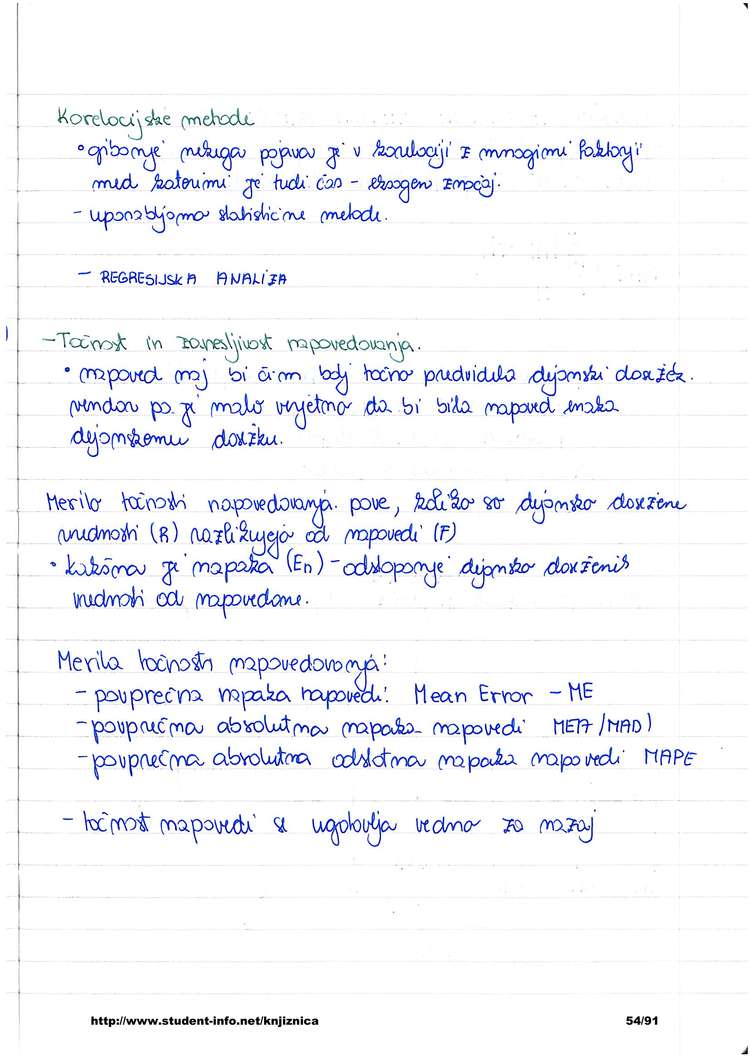 Korelacijske metode
• gibanje nekega pojava je v korelaciji z mnogimi faktorji
med katerimi je tudi čas - eksogen značaj.
- uporabljamo statistične metode.
- REGRESIJSKA ANALIZA
- Točnost in zanesljivost napovedovanja.
• napoved naj bi čim bolj točno predvidela dejanski dosežek.
vendar pa je malo verjetno da bi bila napoved enaka
dejanskemu dosežku.
Merilo točnosti napovedovanja pove, koliko so dejansko dosežene
vrednosti (R) razlikujejo od napovedi (F)
• kakšna je napaka (En) - odstopanje dejansko doseženih
vrednosti od napovedane.
Merila točnosti napovedovanja:
- povprečna napaka napovedi: Mean Error - ME
- povprečna absolutna napaka napovedi /MAD)
- povprečna absolutna odstotna napaka napovedi MAPE
- točnost napovedi se ugotovlja vedno za nazaj
http://www.student-info.net/knjiznica 54/91